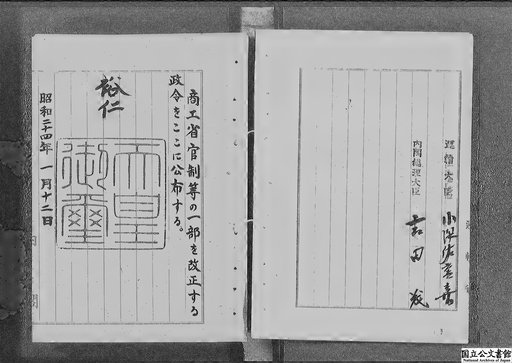 商工省官制等の一部を改正する
政令をここに公布する。
裕仁
昭和二十四年一月十二日
天皇
御璽
内閣総理大臣
吉田茂
国立公文書館
National Archives of Japan